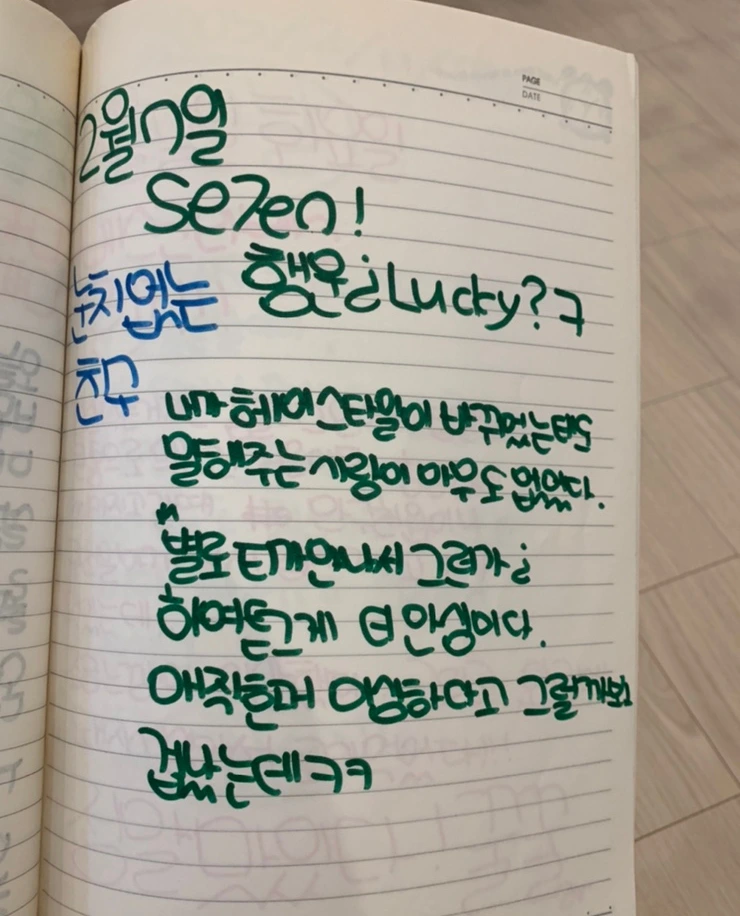 PAGE
DATE
2월 7일
Se7en!
행운¿Lucky?ㅋ
눈치없는
친구
내가 헤이스타일이 바뀌었는데도
말해주는 사람이 아무도 없었다.
별로 티가 안나서 그런가¿
하여튼 그게 더 안심이다.
애직한머 이상하다고 그럴까봐
겁났는데ㅋㅋ